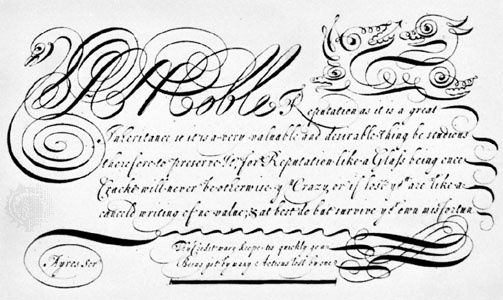 A Noble Reputation as it is a great
Inheritance so it is a very valuable and desirable thing be studious
therefore to preserve it, for Reputation like a Glass being once
Crackt will never be otherwise yn Crazy, or if lost ys are like a
cancell'd writing of no value; & at best do but survive yr own misfortun
Thy Credit wary keep, tis quickly gone
Being got by many Actions lost by one
Ayres Scr